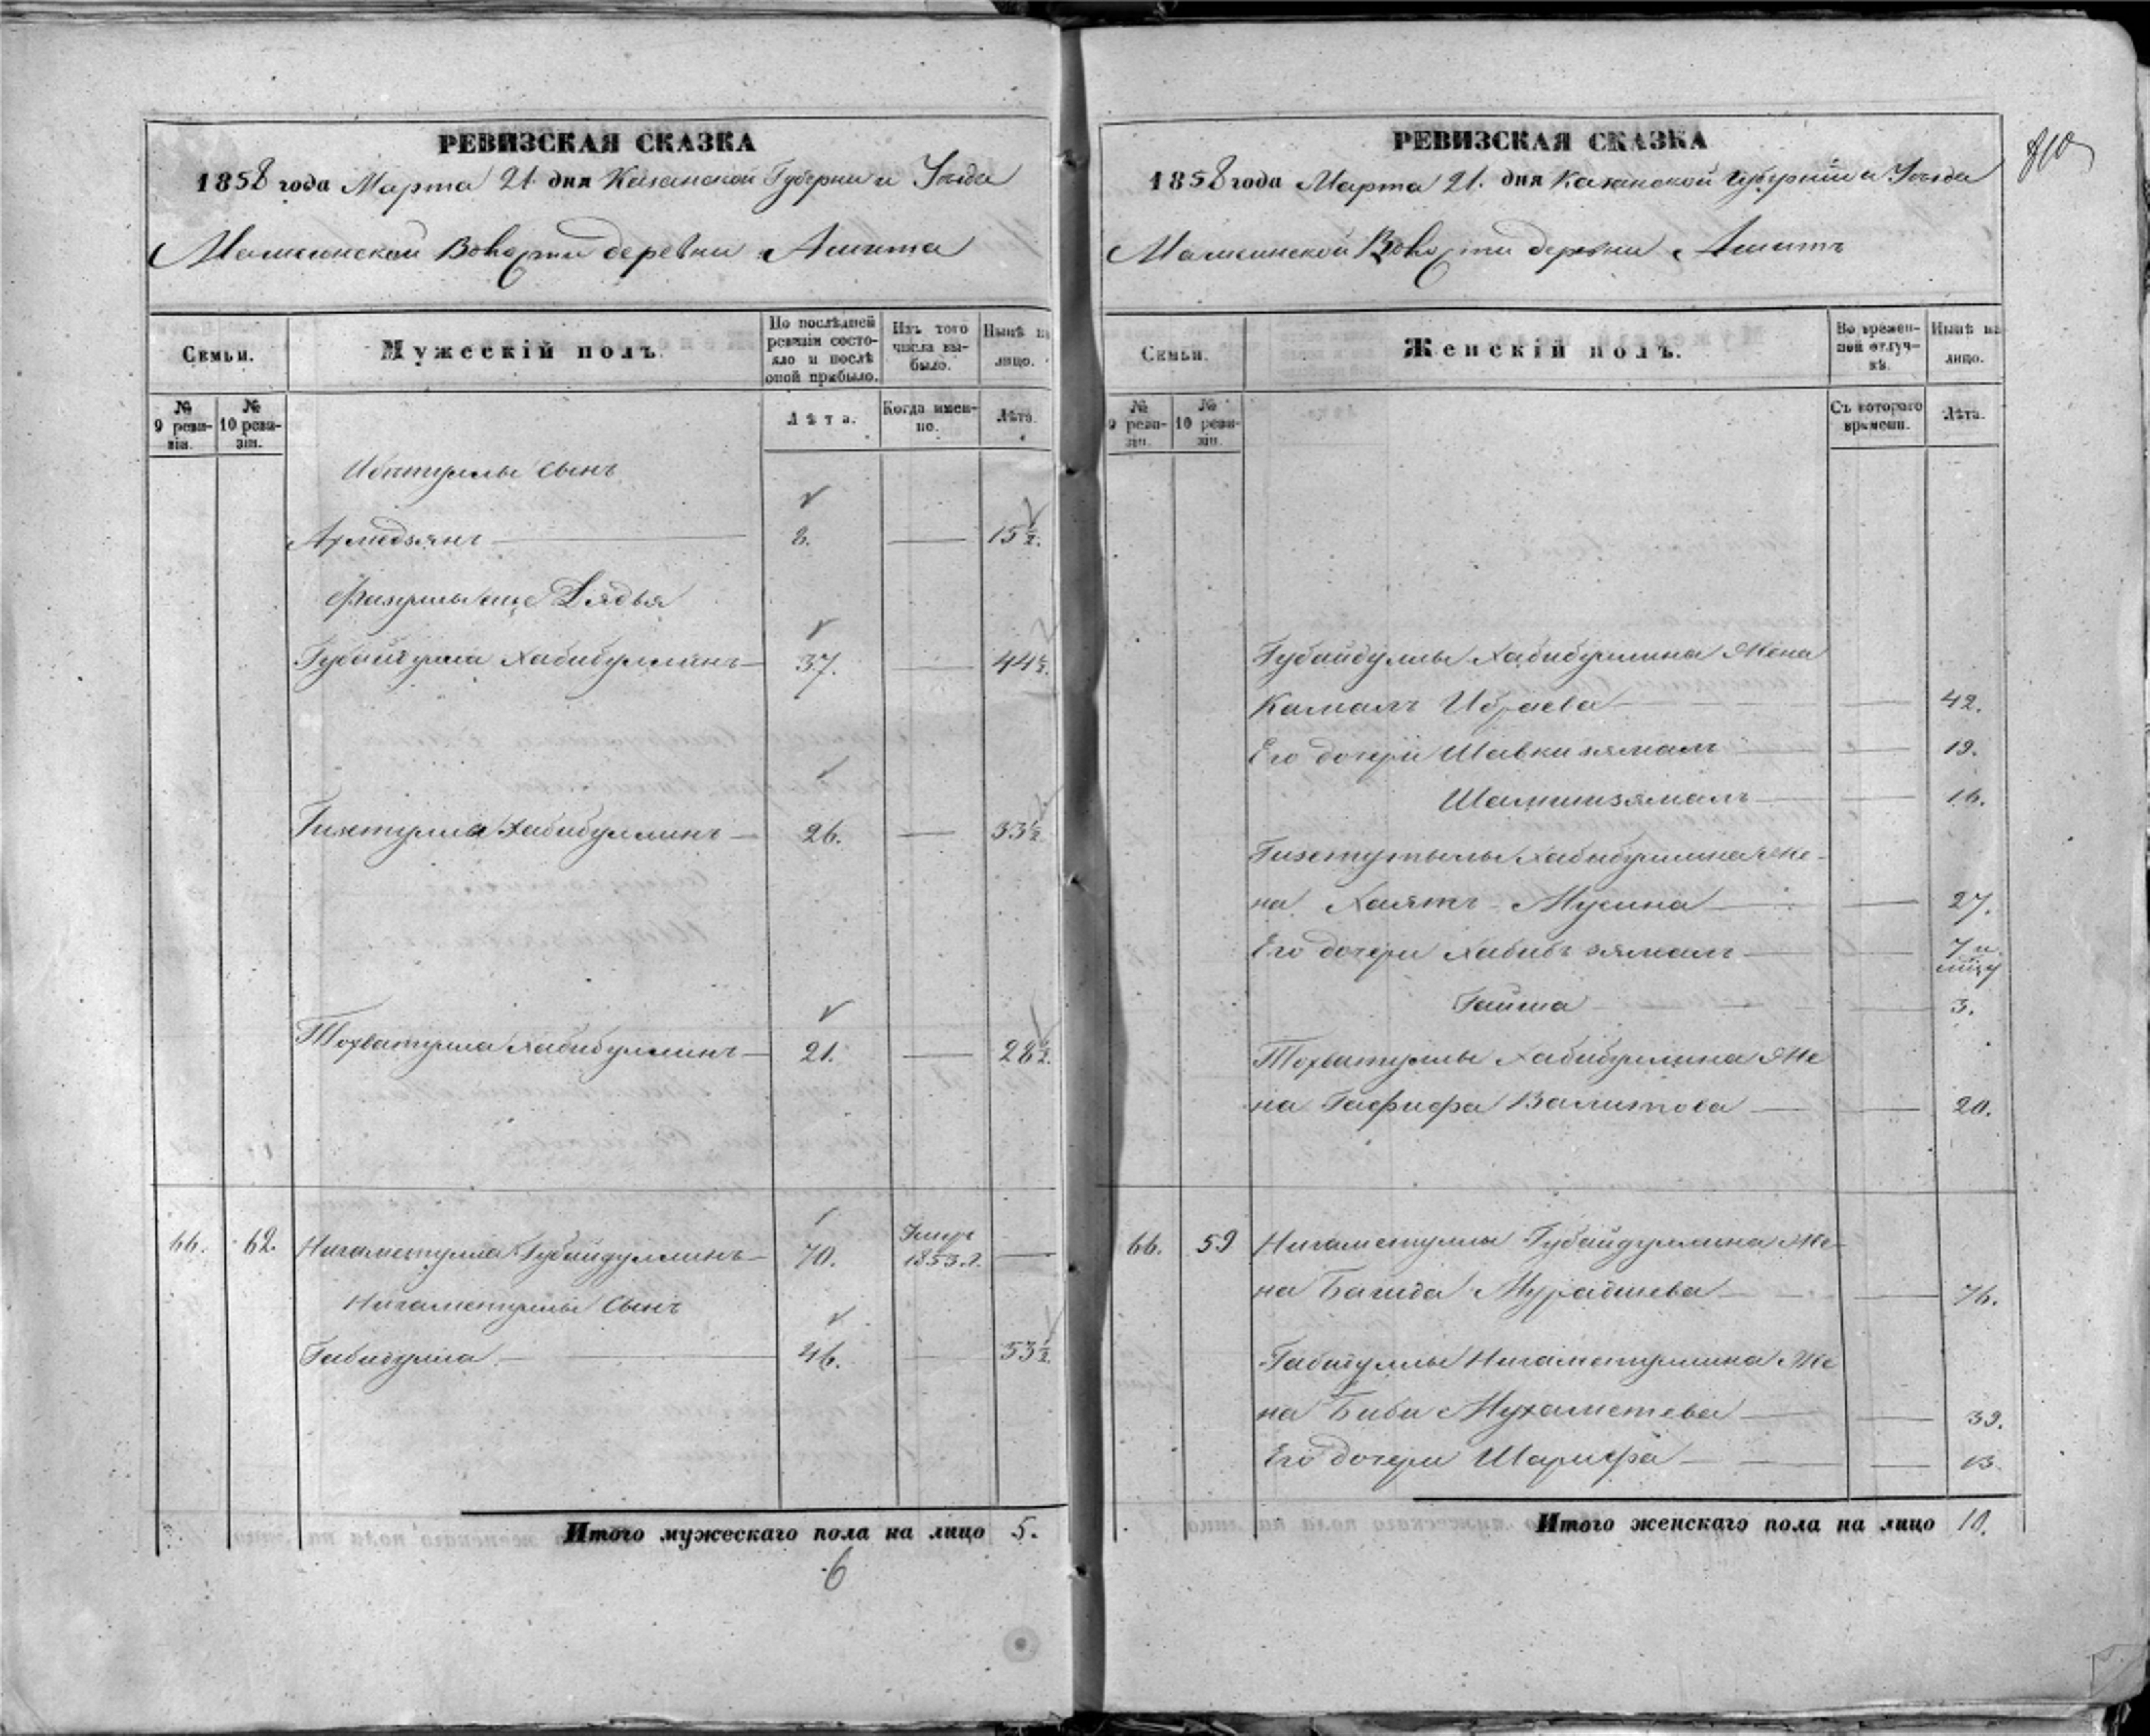 РЕВИЗСКАЯ СКАЗКА
1858 года Марта 21 дня Казанской Губернии и Уезда
Мамсинской Волости деревни Ашита
Семьи.
Мужескій полъ.
По послѣдней ревизіи состояло и послѣ оной прибыло.
Изъ того числа выбыло.
Нынѣ на лицо.
№ 9 ревизіи.
№ 10 ревизіи.
Лѣта.
Когда именно.
Лѣта.
сынъ
Ахмедзянъ 8. 15½.
Дядья
Губайдулла Хабибуллинъ 37. 44½.
Гизетулла Хабибуллинъ 26. 33½.
Тохватулла Хабибуллинъ 21. 28½.
66. 62. Нигаметулла Губайдуллинъ 70. Умеръ 1853.г.
Нигаметуллы сынъ
Габидулла 46. 53½.
Итого мужескаго пола на лицо 5.
6
РЕВИЗСКАЯ СКАЗКА
1858 года Марта 21. дня Казанской Губерніи и Уезда
Мамсинской Волости деревни Ашитъ
Семьи.
Женскій полъ.
Во временной отлучкѣ.
Нынѣ на лицо.
№ 9 ревизіи.
№ 10 ревизіи.
Съ котораго времени.
Лѣта.
Губайдуллы Хабибуллина Жена
Камалъ Ибраева 42.
Его дочери Шавкизямалъ 19.
Шамшизямалъ 16.
Хабибуллина Же-
на Хаятъ Мусина 27.
Его дочери Хабибъзямалъ 7 и
Гайша 3.
Тохватуллы Хабибуллина Же
на Гафифа Валитова 20.
66. 59 Нигаметуллы Губайдуллина Же
на Багида 76.
Нигаметуллина Же
на Биби Мухаметева 39.
Его дочери Шарифа 13
Итого женскаго пола на лицо 10.